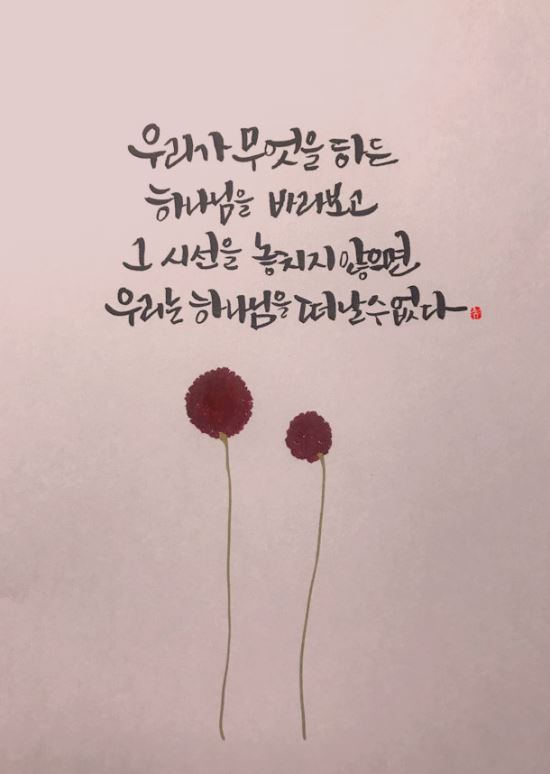 우리가 무엇을 하든
하나님을 바라보고
그 시선을 놓치지 않으면
우리는 하나님을 떠날수없다